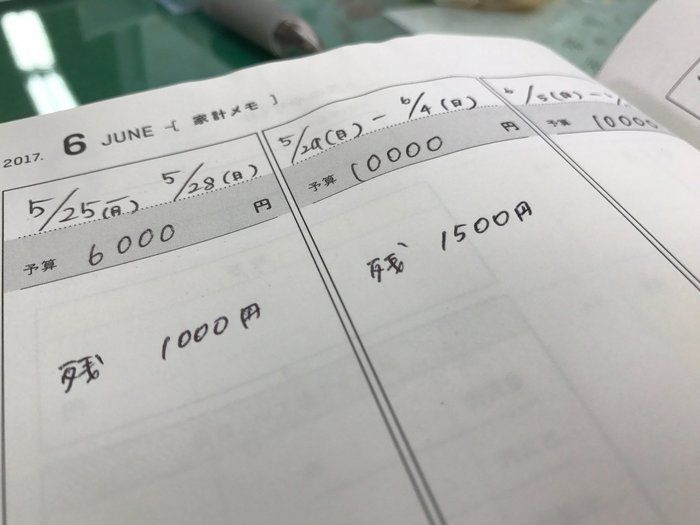 2017. 6 JUNE -[ 家計メモ ]
5/25(月) 5/28(日)
予算 6000 円
残 1000円
5/29(日) - 6/4(日)
予算 10000 円
残 1500円
6/5(日) -
予算 10000